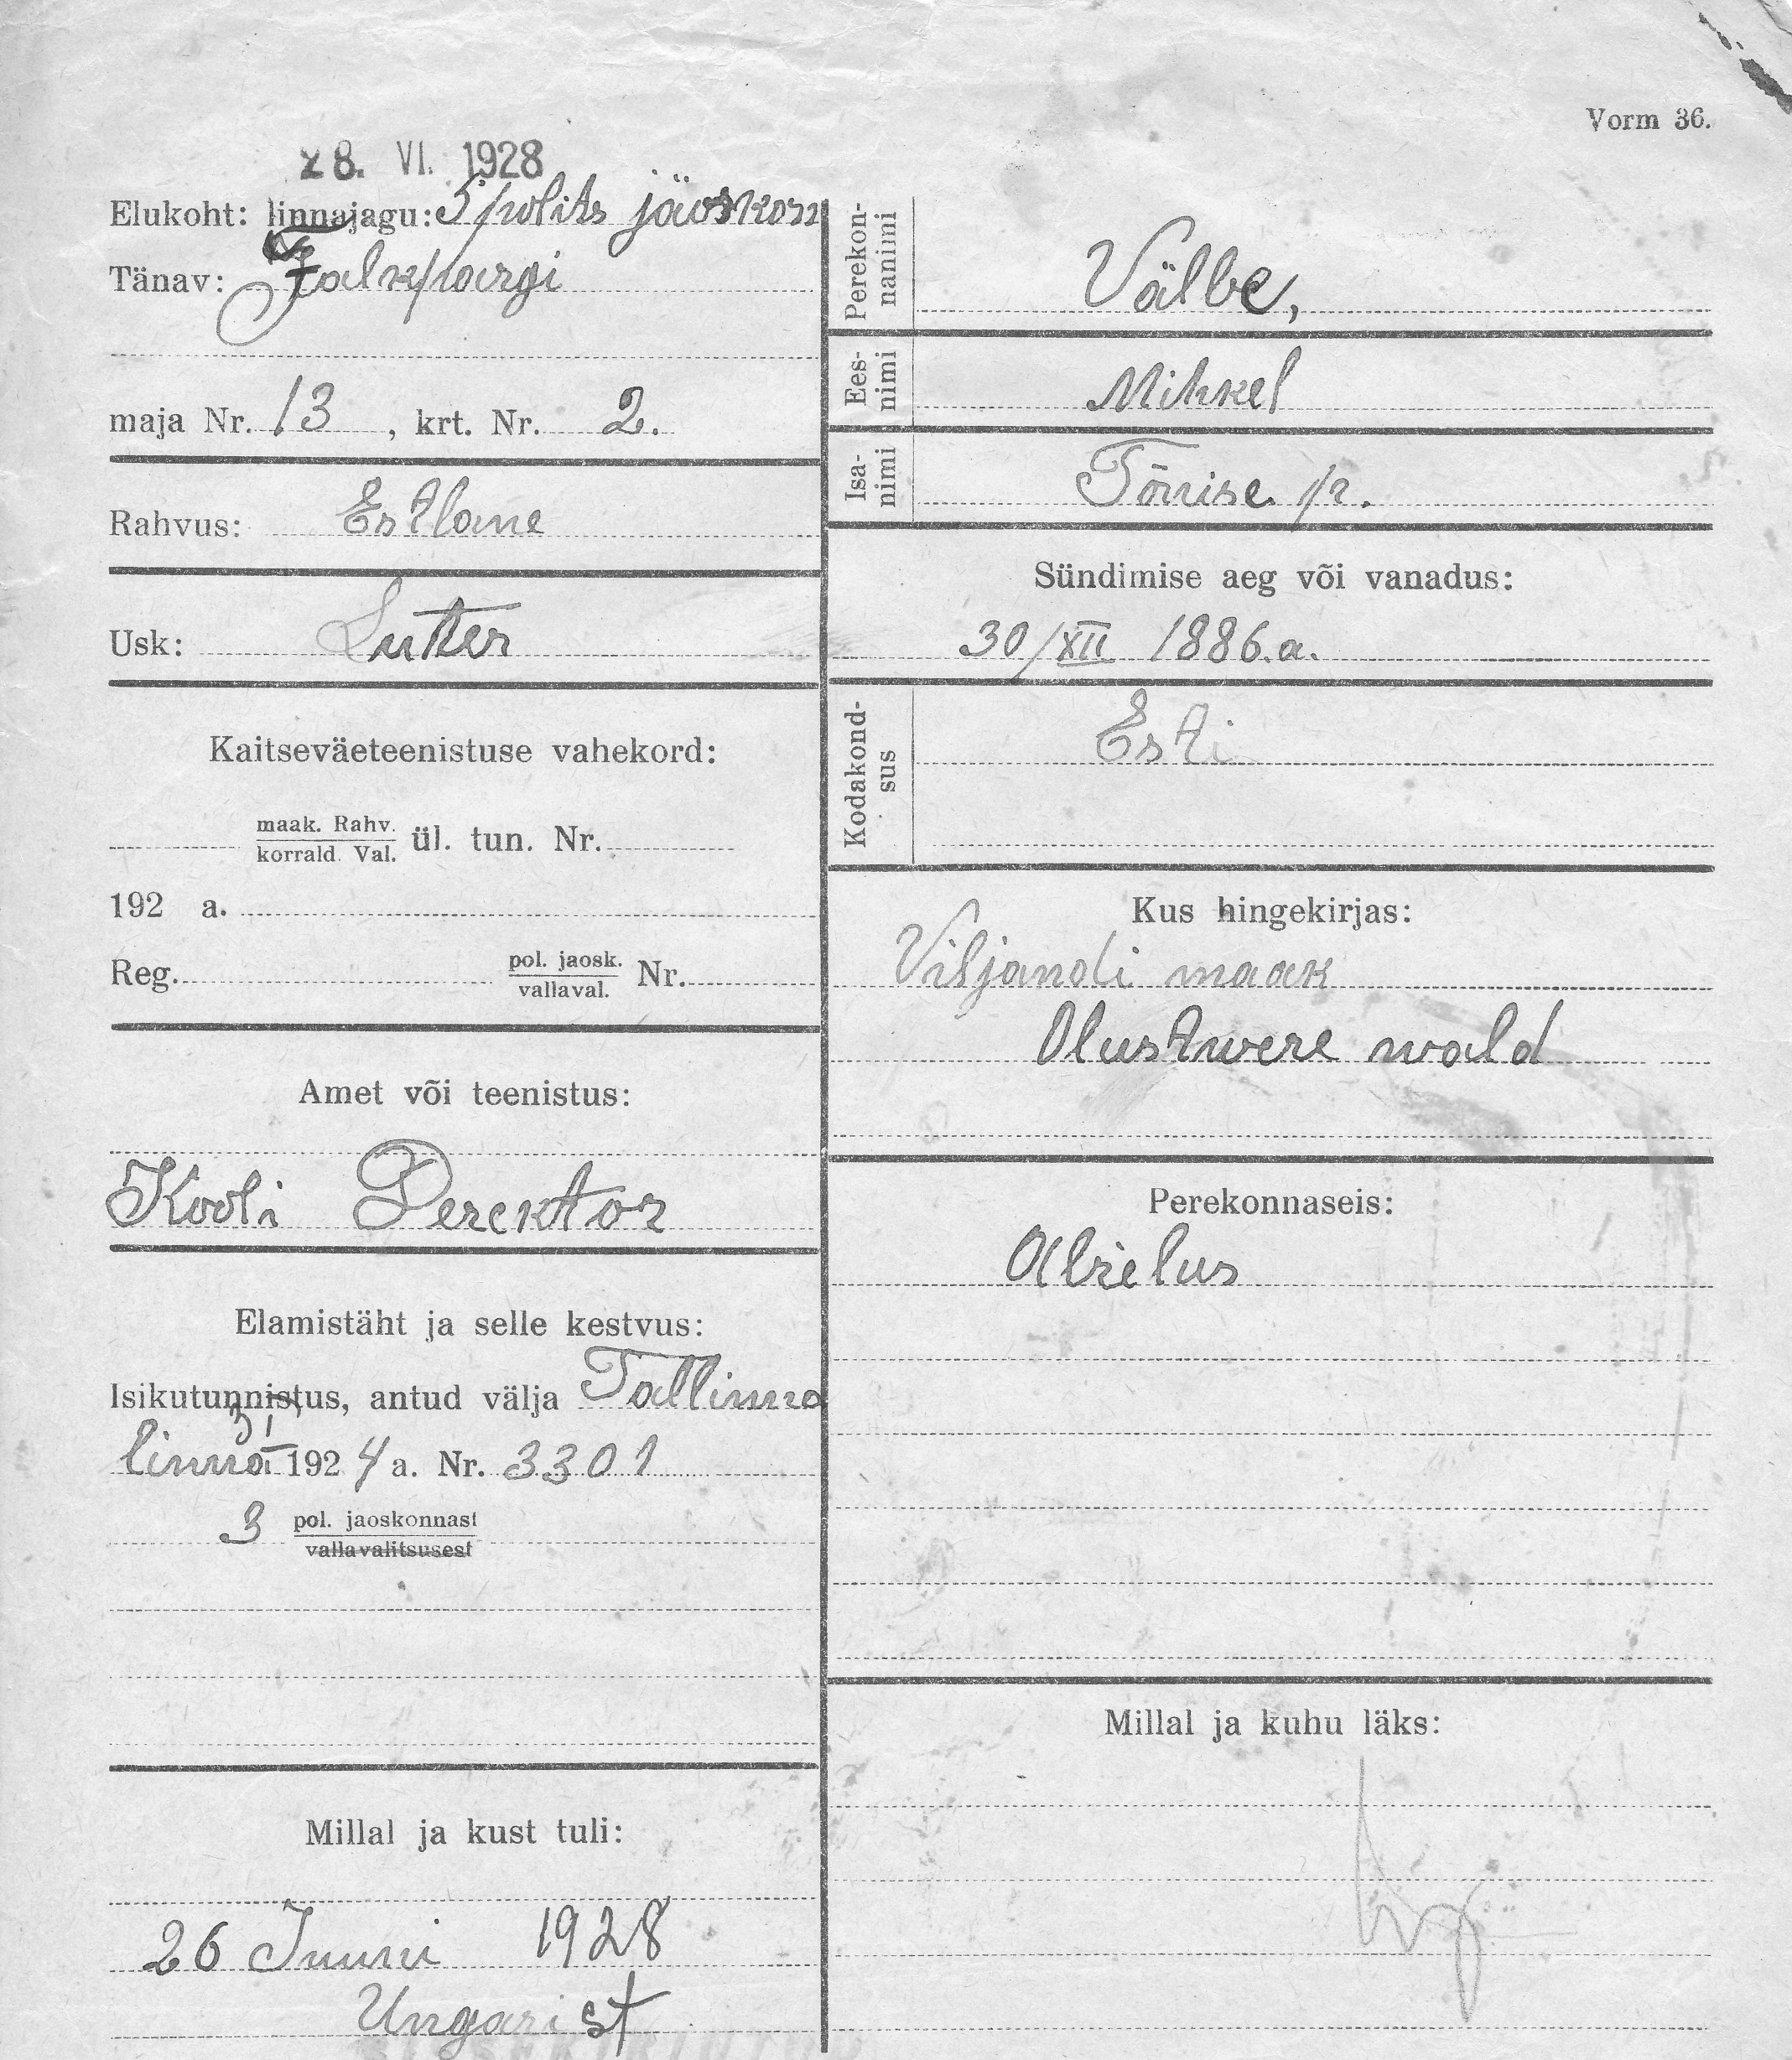 Vorm 36.
28. VI. 1928
Elukoht: linnajagu: 5 polits jäoskon
Tänav: Falkpargi
maja Nr. 13, krt. Nr. 2.
Rahvus: Estlane
Usk: Luter
Kaitseväeteenistuse vahekord:
maak. Rahv.
korrald. Val. ül. tun. Nr.
192 a.
Reg. pol. jaosk.
vallaval. Nr.
Amet või teenistus:
Kooli Derektor
Elamistäht ja selle kestvus:
Isikutunnistus, antud välja Tallinna
linna 192 4 a. Nr. 3301
3 pol. jaoskonnast
vallavalitsusest
Millal ja kust tuli:
26 Juuni 1928
Ungarist
Perekon-
nanimi Välbe,
Ees-
nimi Mihkel
Isa-
nimi Tõnise p.
Sündimise aeg või vanadus:
30/XII 1886.a.
Kodakond-
sus Esti
Kus hingekirjas:
Viljandi maak
Olustwere wald
Perekonnaseis:
Abielus
Millal ja kuhu läks: